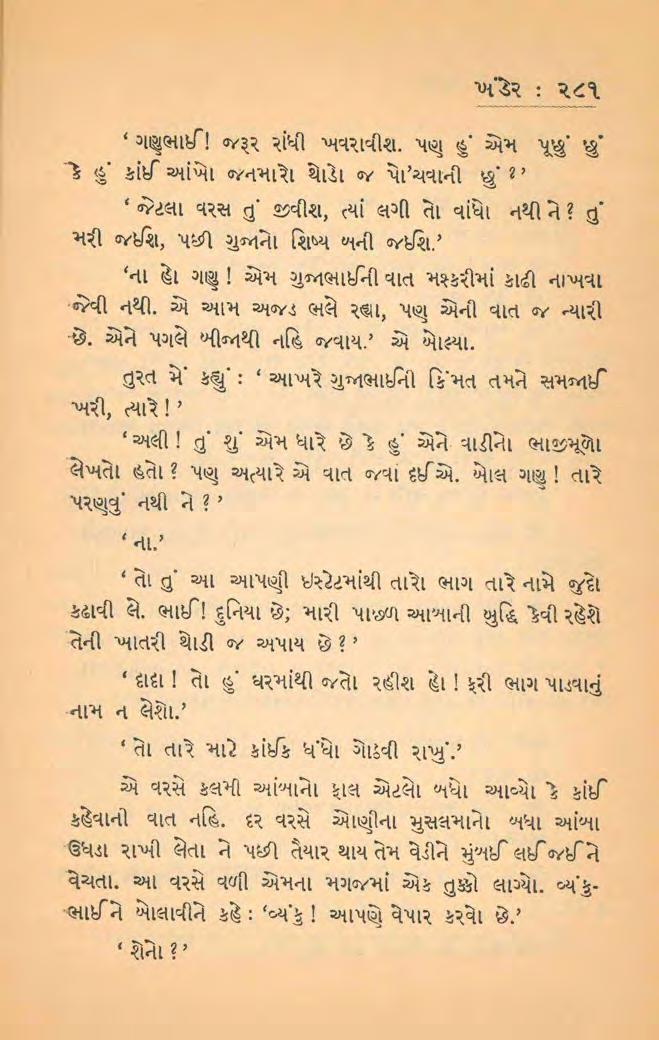 ખંડેર : ૨૮૧
‘ ગણુભાઈ! જરૂર રાંધી ખવરાવીશ. પણ હું એમ પૂછું છું
કે હું કાંઈ આંખો જનમારો થોડો જ પો’ચવાની છું ?’
‘ જેટલા વરસ તું જીવીશ, ત્યાં લગી તો વાંધો નથી ને? તું
મરી જઈશ, પછી ગુજાનો શિષ્ય બની જઈશ.’
‘ના હો ગણુ ! એમ ગુજાભાઈની વાત મશ્કરીમાં કાઢી નાખવા
જેવી નથી. એ આમ અજડ ભલે રહ્યા, પણ એની વાત જ ન્યારી
છે. એને પગલે બીજાથી નહિ જવાય.’ એ બોલ્યા.
તુરત મેં કહ્યું : ‘ આખરે ગુજાભાઈની કિંમત તમને સમજાઈ
ખરી, ત્યારે ! ’
‘ અલી ! તું શું એમ ધારે છે કે હું એને વાડીનો ભાજીમૂળો
લેખતો હતો ? પણ અત્યારે એ વાત જવા દઈએ. બોલ ગણુ ! તારે
પરણવું નથી ને ? ’
‘ ના.’
‘ તો તું આ આપણી ઇસ્ટેટમાંથી તારો ભાગ તારે નામે જુદો
કઢાવી લે. ભાઈ ! દુનિયા છે; મારી પાછળ આબાની બુદ્ધિ કેવી રહેશે
તેની ખાતરી થોડી જ અપાય છે ? ’
‘ દાદા ! તો હું ઘરમાંથી જતો રહીશ હો ! ફરી ભાગ પાડવાનું
નામ ન લેશો.’
‘ તો તારે માટે કાંઈક ધંધો ગોઠવી રાખું.’
એ વરસે કલમી આંબાનો ફાલ એટલો બધો આવ્યો કે કાંઈ
કહેવાની વાત નહિ. દર વરસે ઓણીના મુસલમાનો બધા આંબા
ઉધડા રાખી લેતા ને પછી તૈયાર થાય તેમ વેડીને મુંબઈ લઈ જઈને
વેચતા. આ વરસે વળી એમના મગજમાં એક તુક્કો લાગ્યો. વ્યંકુ-
ભાઈને બોલાવીને કહે : ‘વ્યંકુ ! આપણે વેપાર કરવો છે.’
‘ શેનો ? ’